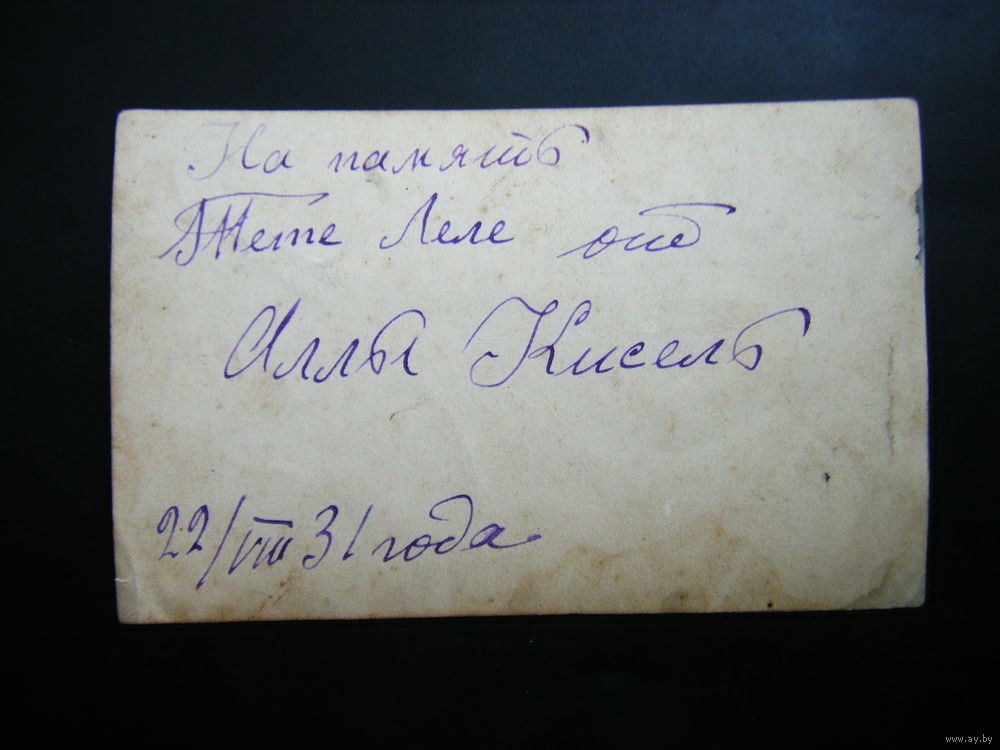 На память
Тете Леле от
Аллы Кисель
22/VIII 31 года
www.ay.by